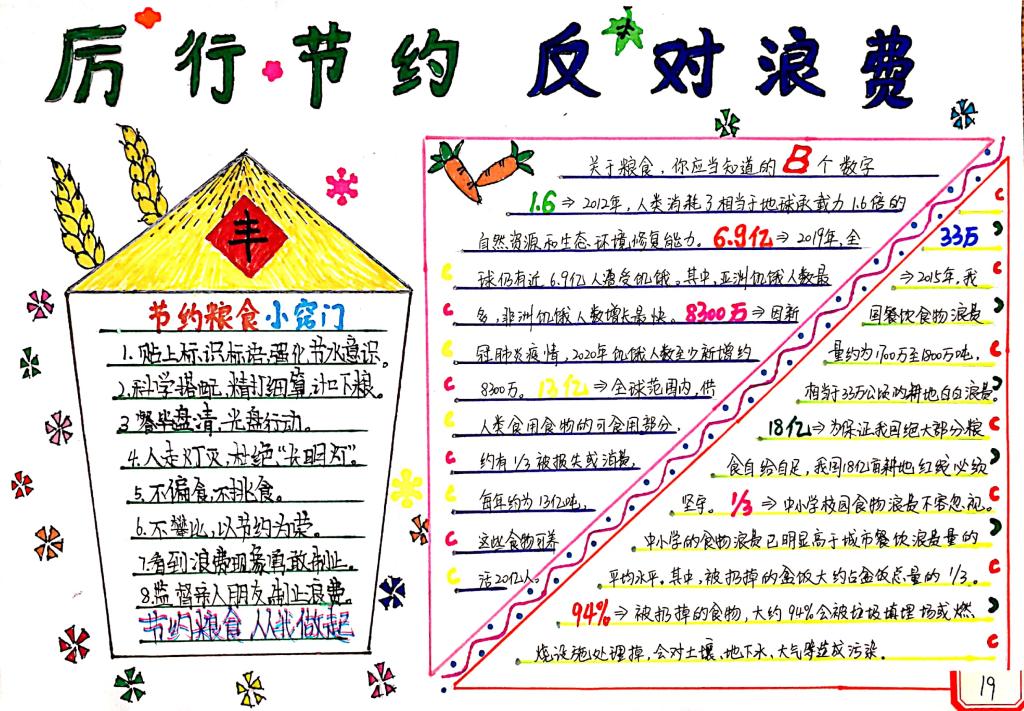 厉行节约 反对浪费
丰
节约粮食小窍门
1.贴上标识标语,强化节水意识。
2.科学搭配,精打细算,计口下粮。
3.餐毕盘清,光盘行动。
4.人走灯灭,杜绝“长明灯”。
5.不偏食,不挑食。
6.不攀比,以节约为荣。
7.看到浪费现象勇敢制止。
8.监督亲人朋友,制止浪费。
节约粮食 从我做起
关于粮食,你应当知道的8个数字
1.6⇒2012年,人类消耗了相当于地球承载力1.6倍的
自然资源和生态环境修复能力。6.9亿⇒2019年,全
球仍有近6.9亿人遭受饥饿。其中,亚洲饥饿人数最
多,非洲饥饿人数增长最快。8300万⇒因新
冠肺炎疫情,2020年饥饿人数至少新增约
8300万。13亿⇒全球范围内,供
人类食用食物的可食用部分,
约有1/3被损失或消费,
每年约为13亿吨,
这些食物可养
活20亿人。
33万
⇒2015年,我
国餐饮食物浪费
量约为1700万至1800万吨,
相当于33万公顷的耕地白白浪费。
18亿⇒为保证我国绝大部分粮
食自给自足,我国18亿亩耕地红线必须
坚守。1/3⇒中小学校园食物浪费不容忽视。
中小学的食物浪费已明显高于城市餐饮浪费量的
平均水平。其中,被扔掉的盒饭大约占盒饭总量的1/3。
94%⇒被扔掉的食物,大约94%会被垃圾填埋场或燃
烧设施处理掉,会对土壤、地下水、大气等造成污染。
19